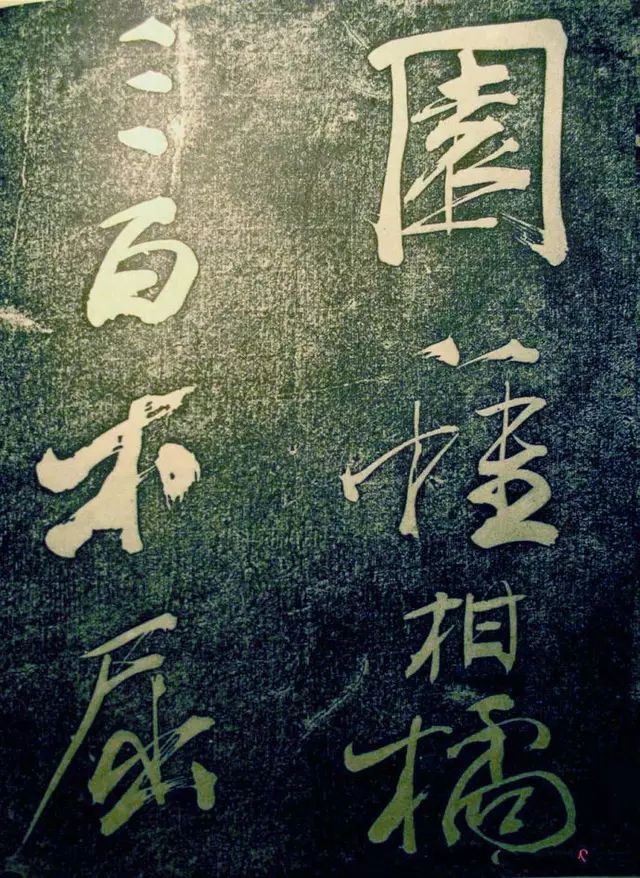 園種柑橘
三百本屈